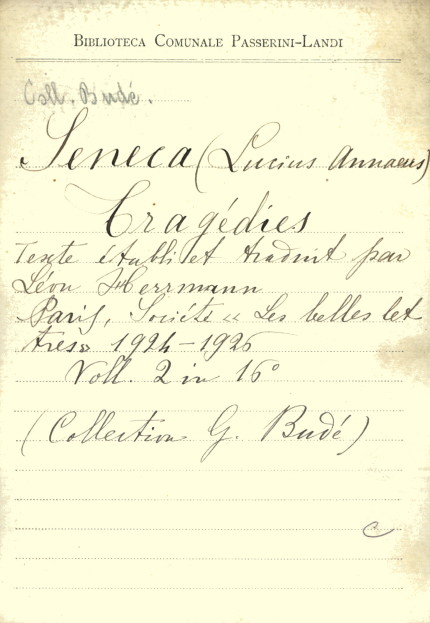 BIBLIOTECA COMUNALE PASSERINI-LANDI
Coll. Budé.
Seneca (Lucius Annaeus)
Tragédies
Texte établi et traduit par
Léon Herrmann
Paris, Société « Les belles let
tres» 1924-1926
Voll. 2 in 16°
(Collection G. Budé)
C